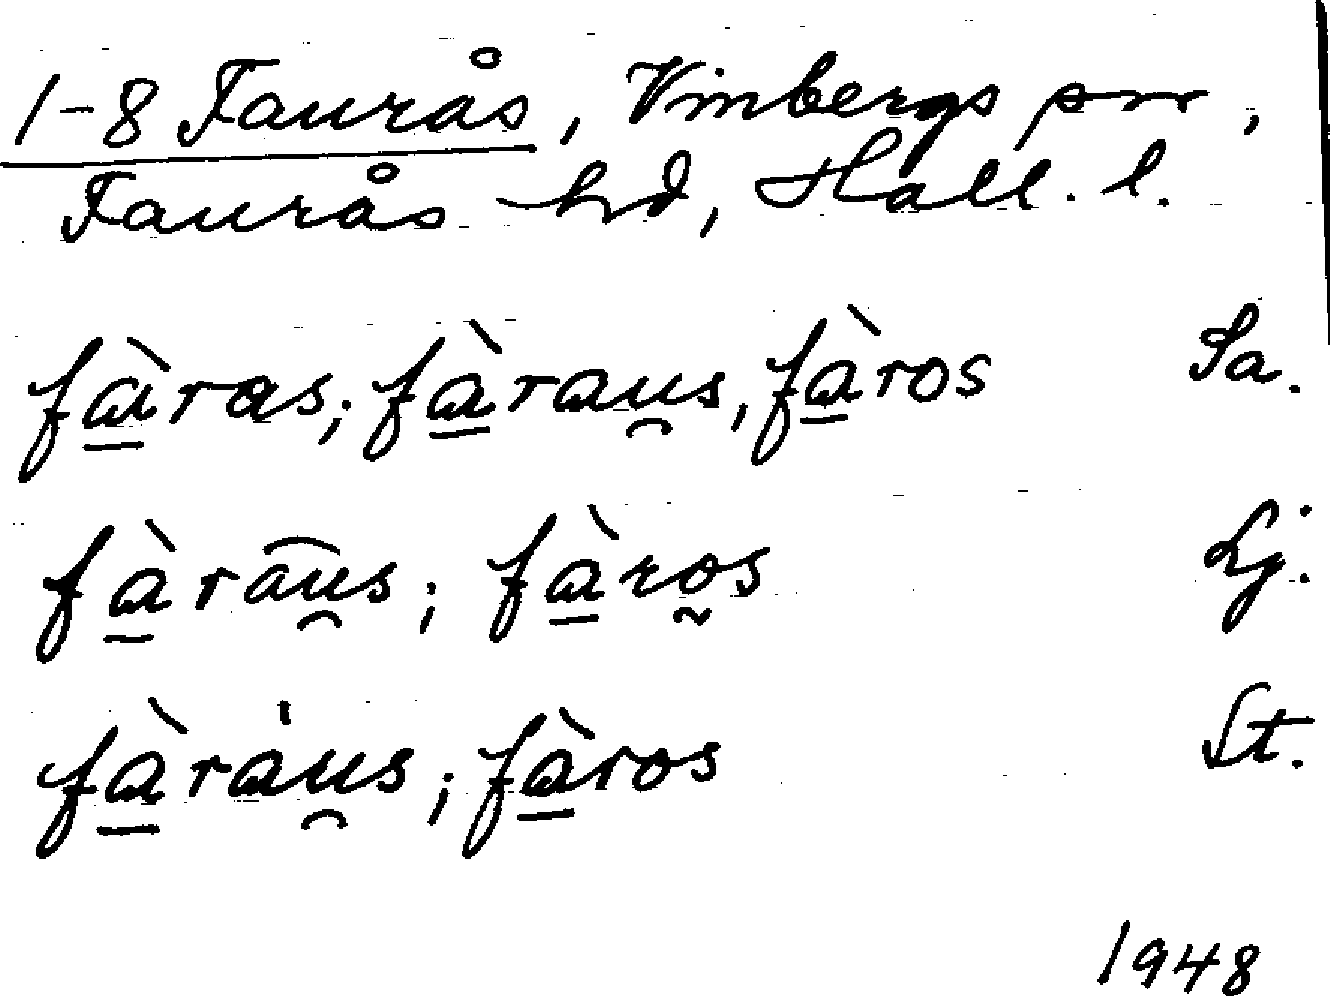 1-8 Faurås, Vinbergs snr,
Faurås hd, Hall. l.
fàras; fàrau̯s, fàros Sa.
fàrau̯s; fàros Lj.
fàràu̯s; fàros St.
1948